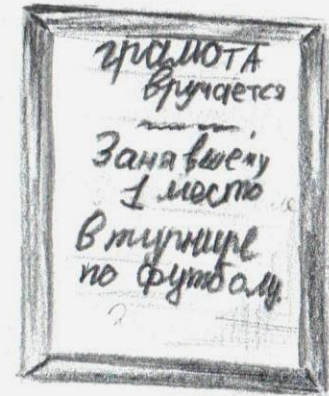 грамота
вручается
Занавшему
1 место
в турнире
по футболу.